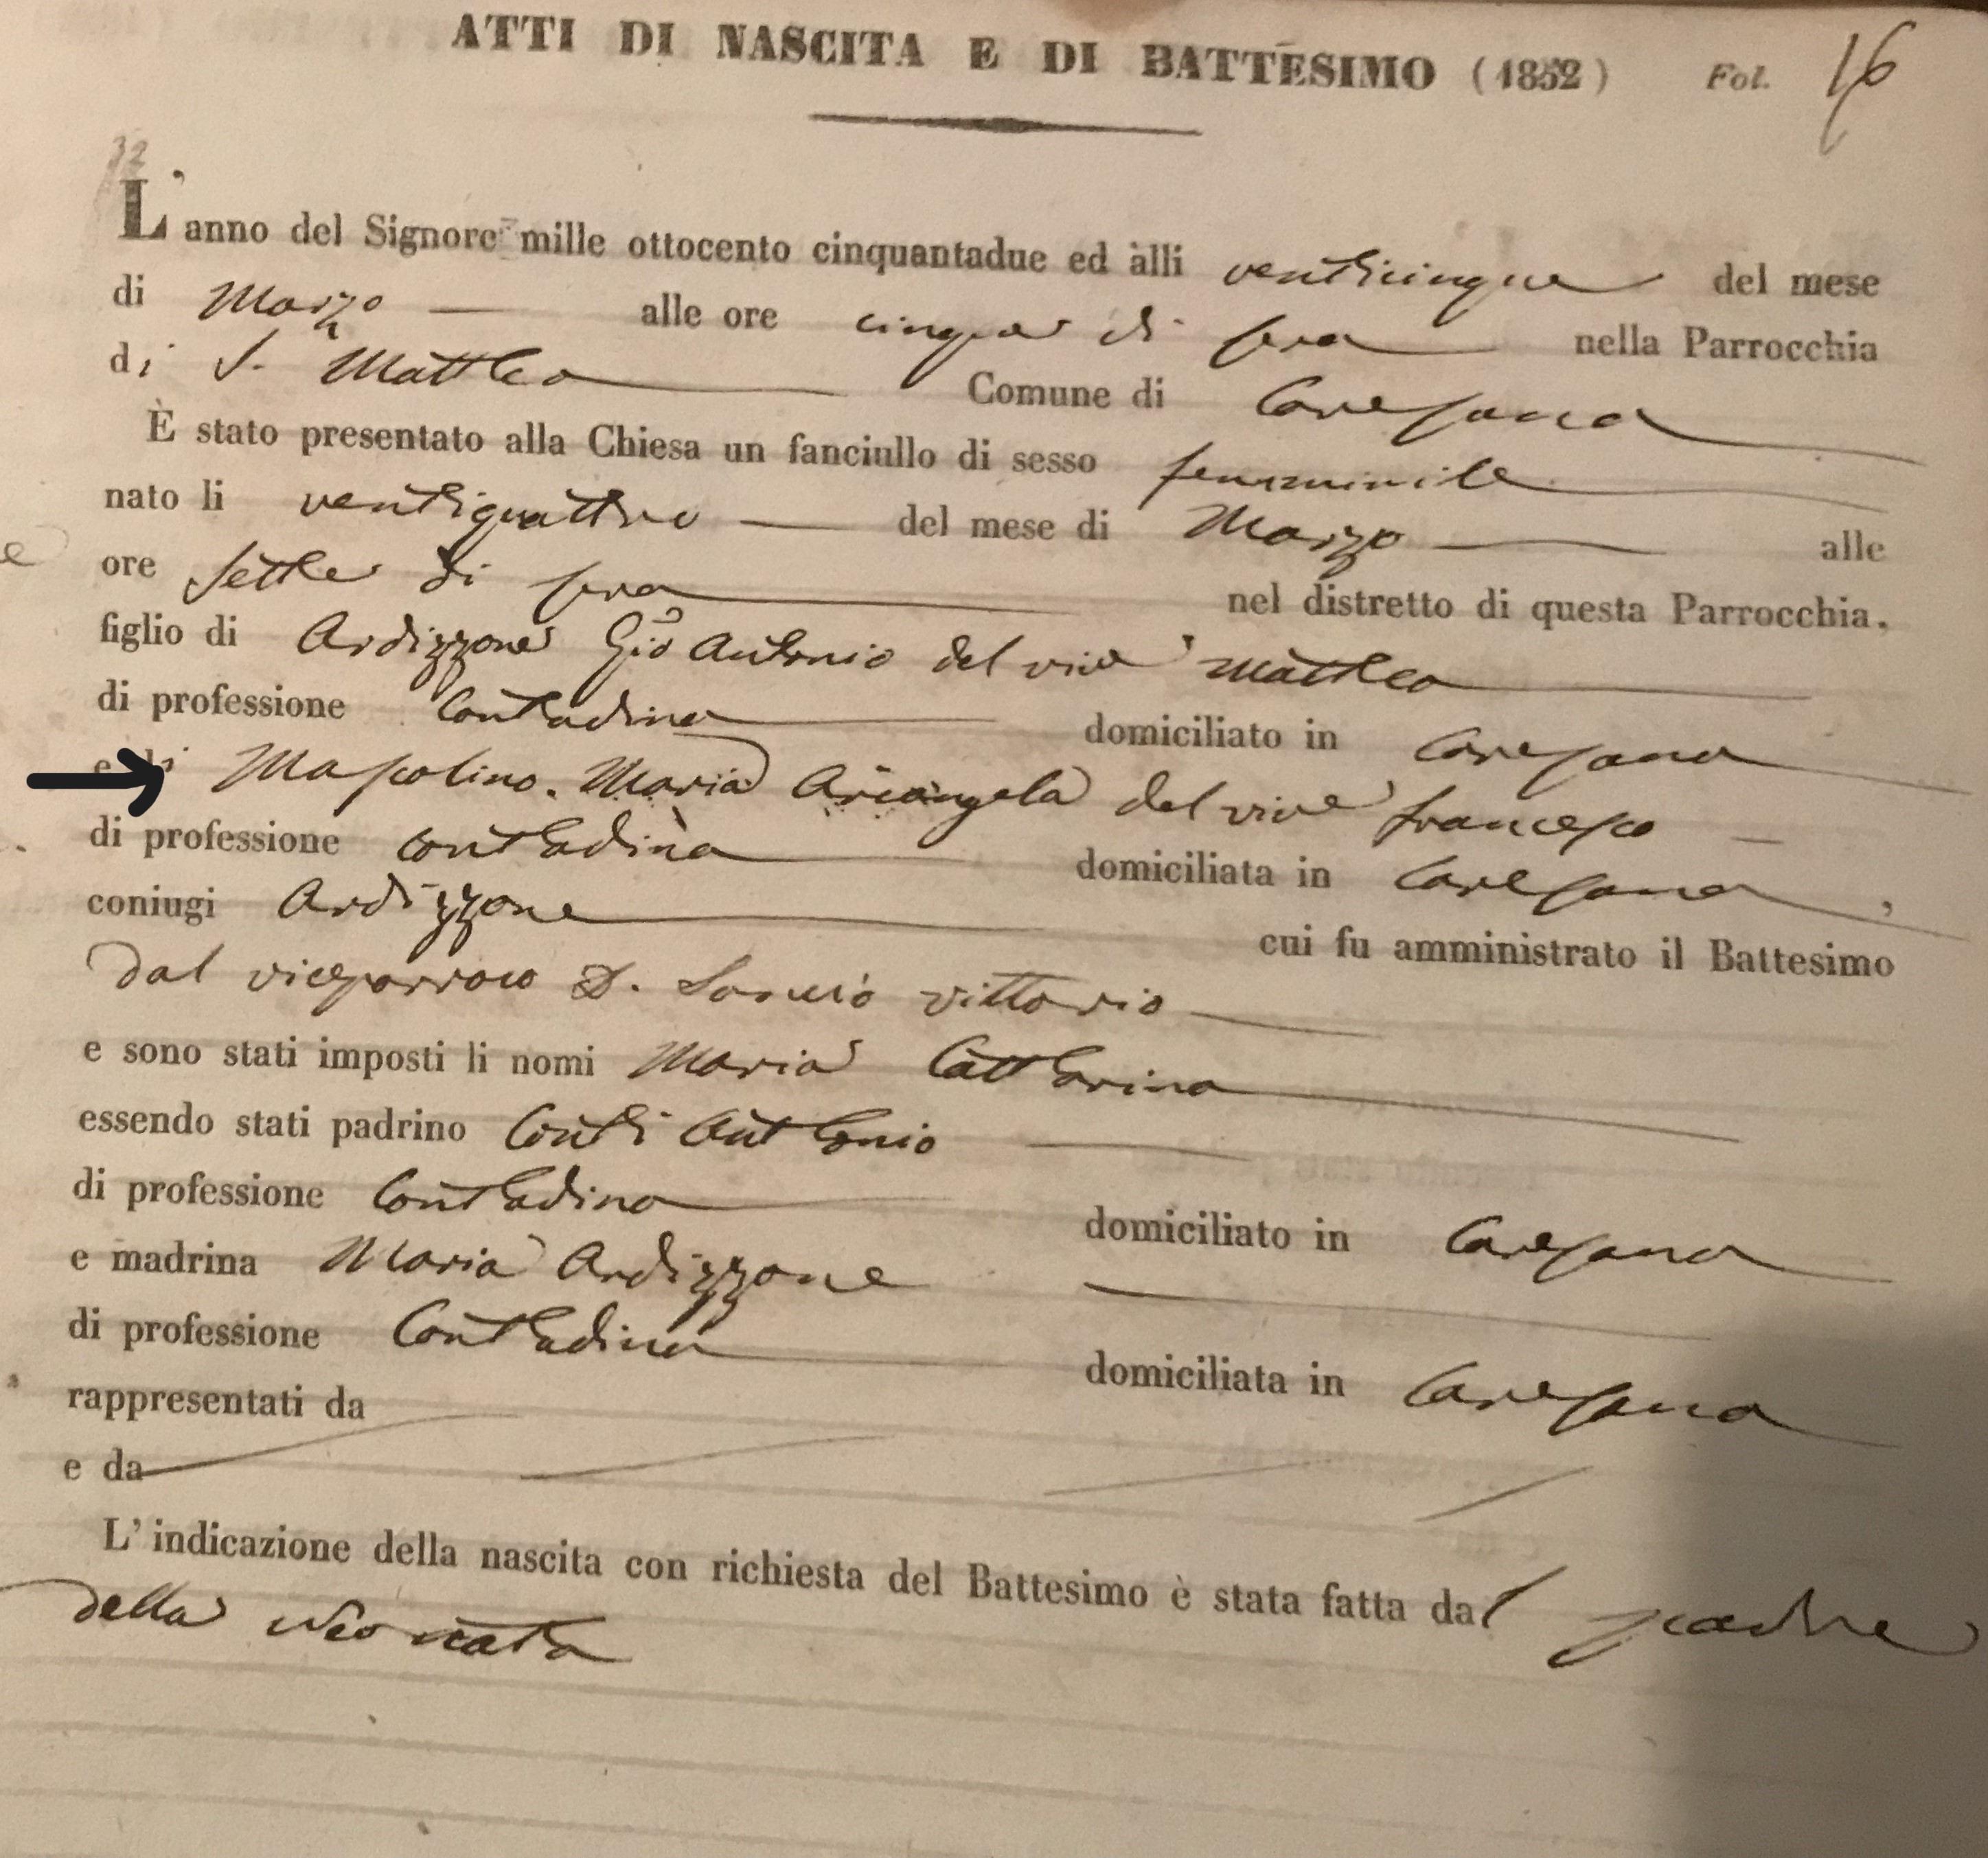 ATTI DI NASCITA E DI BATTESIMO (1852) Fol. 16
32
L'anno del Signore mille ottocento cinquantadue ed àlli venticinque del mese
di Marzo alle ore cinque di sera nella Parrocchia
di S. Matteo Comune di Caresana
È stato presentato alla Chiesa un fanciullo di sesso femminile
nato li ventiquattro del mese di Marzo alle
ore sette di sera nel distretto di questa Parrocchia.
figlio di Ardizzone Gio Antonio del vivo Matteo
di professione Contadino domiciliato in Caresana
e di Mascolino. Maria Arcangela del vive francesco
di professione contadina domiciliata in Caresana,
coniugi Ardizzone cui fu amministrato il Battesimo
dal viceparroco D. vittorio
e sono stati imposti li nomi Maria Catterina
essendo stati padrino Conti Antonio
di professione Contadino domiciliato in Caresana
e madrina Maria Ardizzone
di professione Contadina domiciliata in Caresana
rappresentati da
e da
L'indicazione della nascita con richiesta del Battesimo è stata fatta dal padre
della Neonata